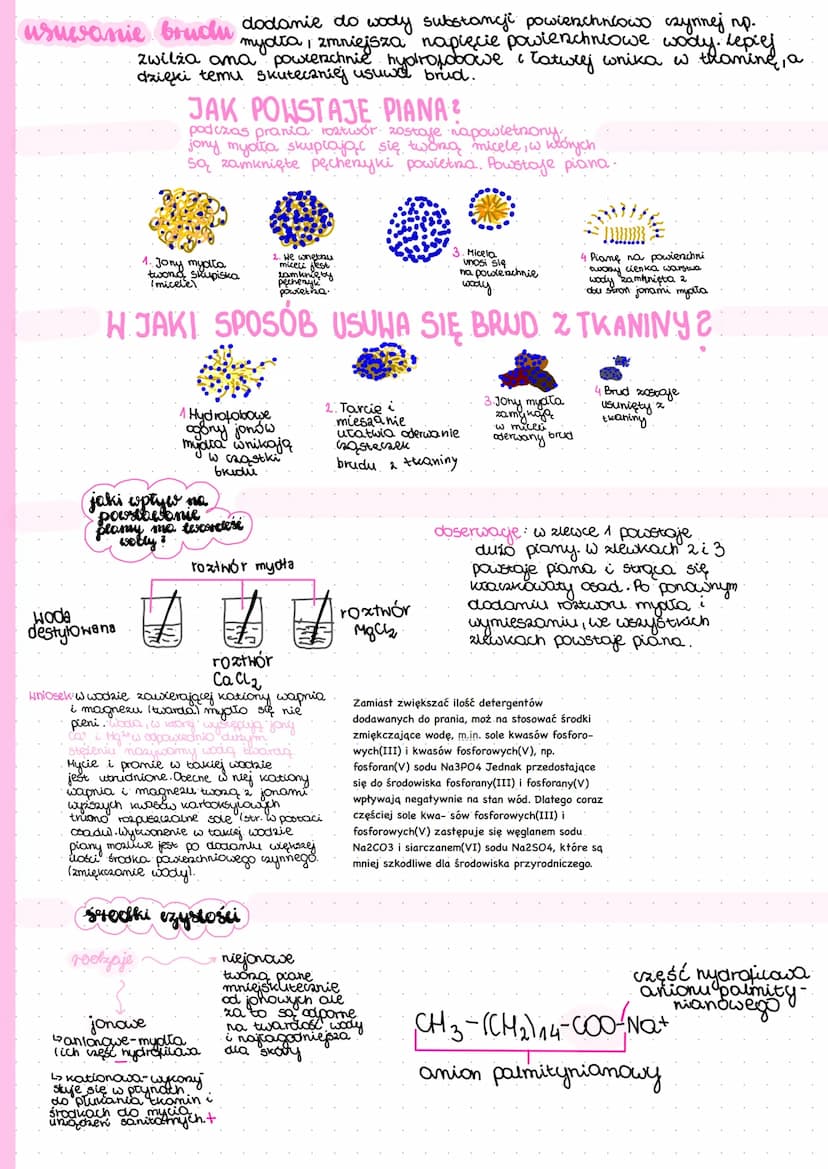 usuwanie brudu
dodanie do wody substancji powierzchniowo czynnej np.
mydła, zmniejsza napięcie powierzchniowe wody. Lepiej
zwilża ona powierzchnie hydrofobowe i łatwiej wnika w tkaninę, a
dzięki temu skuteczniej usuwa brud.
JAK POWSTAJE PIANA?
podczas prania roztwór zostaje napowietrzony.
jony mydła skupiając się tworzą micele, w których
są zamknięte pęcherzyki powietrza. Powstaje piana.
1. Jony mydła
tworzą skupiska
(micele)
2. We wnętrzu
miceli jest
zamknięty
pęcherzyk
powietrza.
3. Micela
unosi się
na powierzchnię
wody
4 Pianę na powierzchni
tworzy cienka warstwa
wody zamknięta z
dwu stron jonami mydła
W JAKI SPOSÓB USUWA SIĘ BRUD Z TKANINY?
1 Hydrofobowe
ogony jonów
mydła wnikają
w cząstki
brudu
2. Tarcie i
mieszanie
ułatwia oderwanie
cząsteczek
brudu z tkaniny
3. Jony mydła
zamykają
w miceli
oderwany brud
4 Brud zostaje
usunięty z
tkaniny
jaki wpływ na
powstawanie
piany ma twardość
wody?
roztwór mydła
woda
destylowana
roztwór
CaCl2
roztwór
MgCl2
obserwacje: w zlewce 1 powstaje
dużo piany. w zlewkach 2 i 3
powstaje piana i strąca się
kłaczkowaty osad. Po ponownym
dodaniu roztworu mydła i
wymieszaniu, we wszystkich
zlewkach powstaje piana.
wniosek: w wodzie zawierającej kationy wapnia
i magnezu (twarda) mydło się nie
pieni. Woda, w której występują jony
Ca2+ i Mg2+ w odpowiednio dużym
stężeniu nazywamy wodą twardą
Mycie i pranie w takiej wodzie
jest utrudnione. Obecne w niej kationy
wapnia i magnezu tworzą z jonami
wyższych kwasów karboksylowych
trudno rozpuszczalne sole (str. w postaci
osadu). Wytworzenie w takiej wodzie
piany możliwe jest po dodaniu większej
ilości środka powierzchniowego czynnego.
(zmiękczanie wody).
Zamiast zwiększać ilość detergentów
dodawanych do prania, moż na stosować środki
zmiękczające wodę, m.in. sole kwasów fosforo-
wych(III) i kwasów fosforowych(V), np.
fosforan(V) sodu Na3PO4 Jednak przedostające
się do środowiska fosforany(III) i fosforany(V)
wpływają negatywnie na stan wód. Dlatego coraz
częściej sole kwa- sów fosforowych(III) i
fosforowych(V) zastępuje się węglanem sodu
Na2CO3 i siarczanem(VI) sodu Na2SO4, które są
mniej szkodliwe dla środowiska przyrodniczego.
środki czystości
rodzaje
niejonowe
tworzą pianę
mniej skutecznie
od jonowych ale
za to są odporne
na twardość wody
i najłagodniejsza
dla skóry
jonowe
↳ anionowe - mydła
(ich część hydrofilowa -
↳ kationowa - wykorzy
stuje się w płynach
do płukania tkanin i
środkach do mycia
urządzeń sanitarnych. +
część hydrofilowa
anionu palmity-
nianowego
CH3-(CH2)14-COO-Na+
anion palmitynianowy